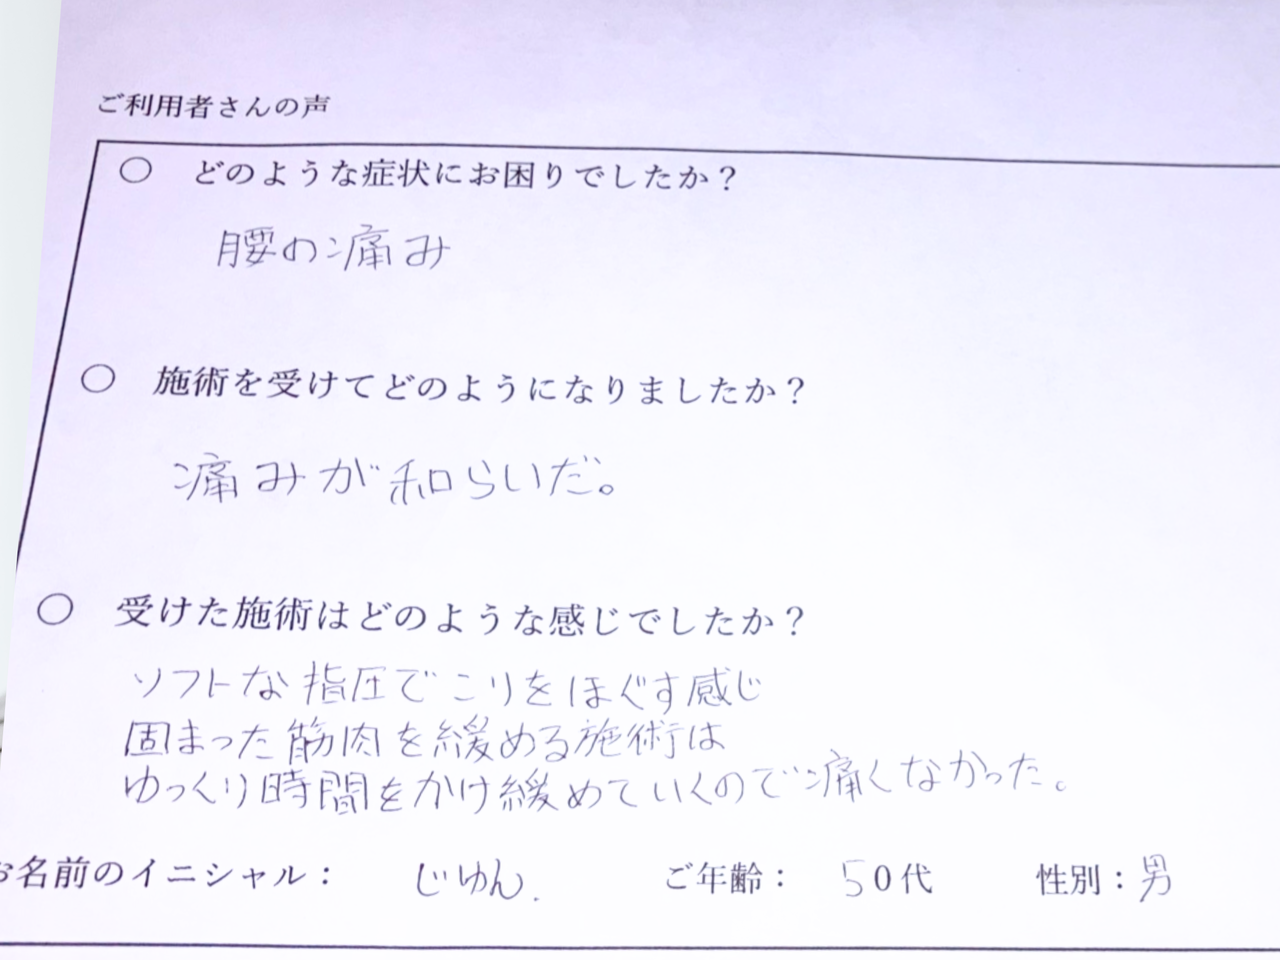 ご利用者さんの声
○ どのような症状にお困りでしたか？
腰の痛み
○ 施術を受けてどのようになりましたか？
痛みが和らいだ。
○ 受けた施術はどのような感じでしたか？
ソフトな指圧でこりをほぐす感じ
固まった筋肉を緩める施術は
ゆっくり時間をかけ緩めていくので痛くなかった。
お名前のイニシャル： じゅん. ご年齢： 50代 性別：男